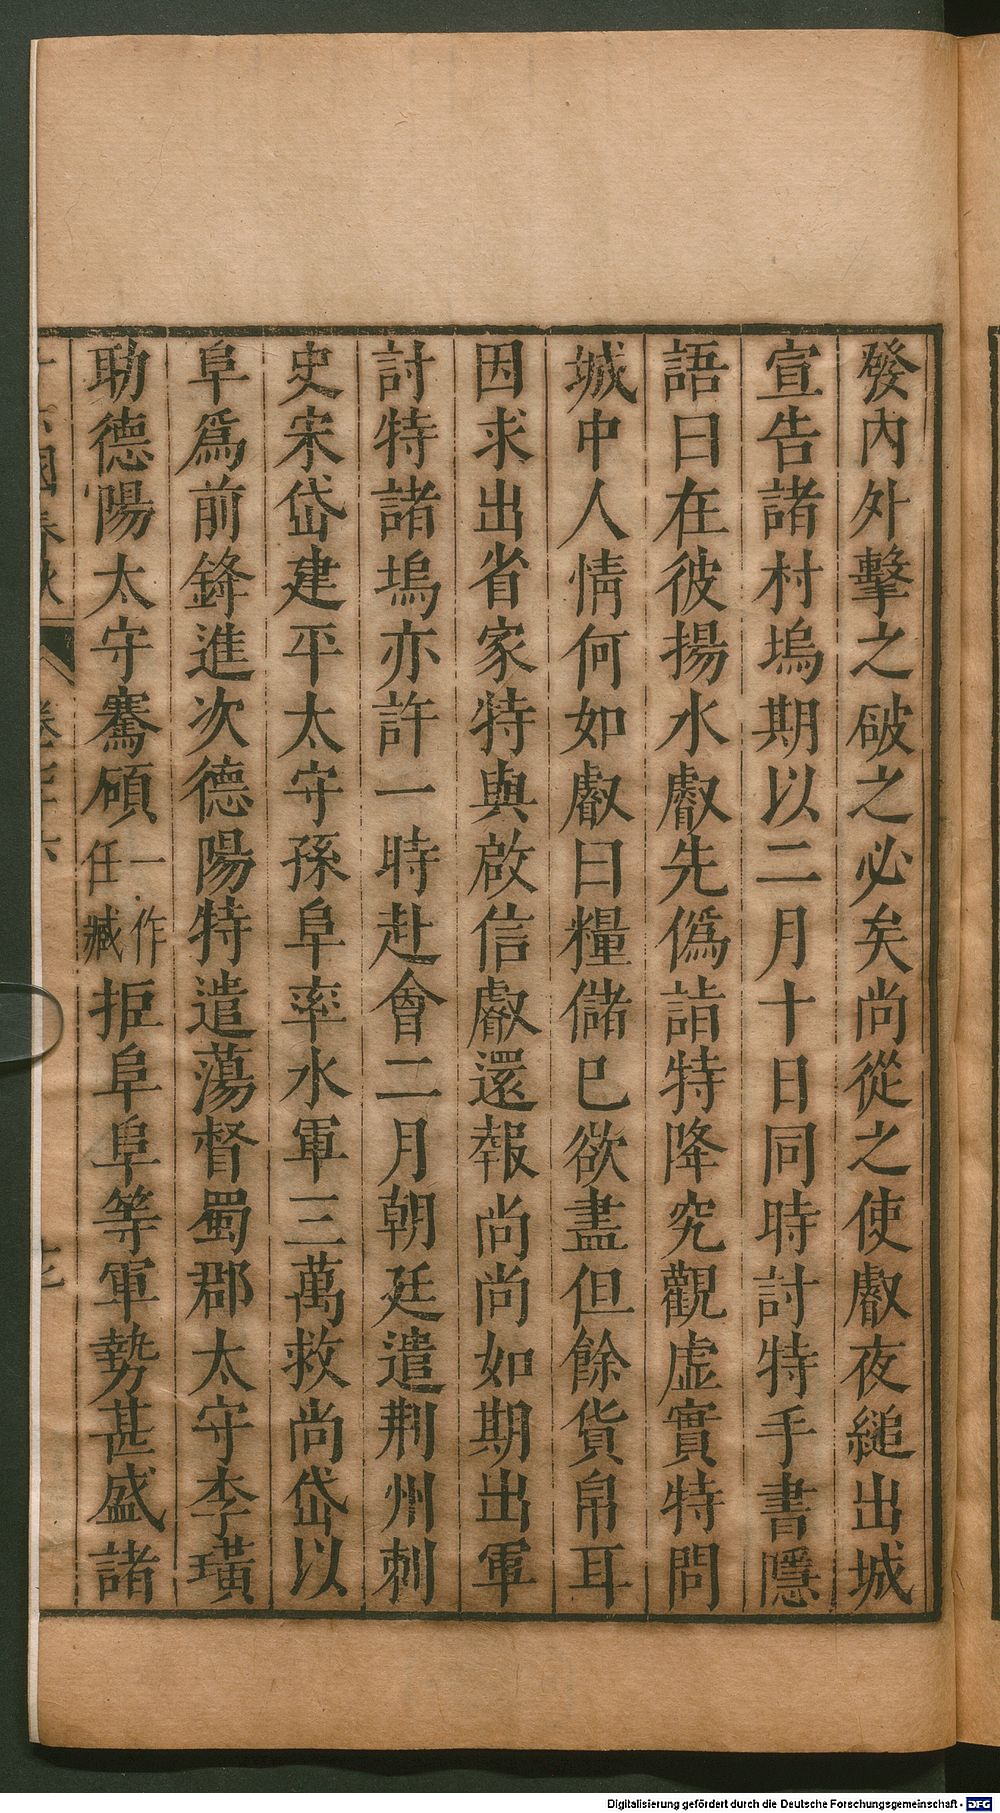 發內外擊之破之必矣尚從之使叡夜縋出城
宣告諸村塢期以二月十日同時討特手書隱
語曰在彼揚水叡先僞詣特降究觀虛實特問
城中人情何如叡曰糧儲已欲盡但餘貨帛耳
因求出省家特與啟信叡還報尚尚如期出軍
討特諸塢亦許一時赴會二月朝廷遣荆州刺
史宋岱建平太守孫阜率水軍三萬救尚岱以
阜爲前鋒進次德陽特遣蕩督蜀郡太守李璜
助德陽太守騫碩一作任臧拒阜阜等軍勢甚盛諸
國春秋
Digitalisierung gefördert durch die Deutsche Forschungsgemeinschaft - DFG